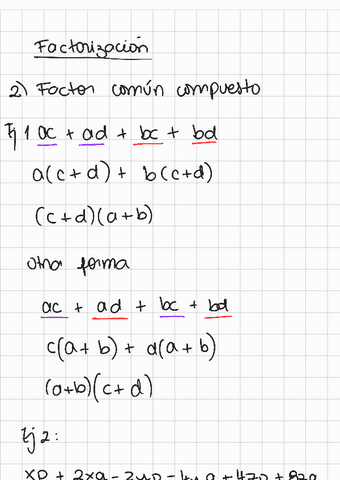 Factorización
2) Factor común compuesto
Ej 1 ac + ad + bc + bd
a(c+d) + b(c+d)
(c+d)(a+b)
otra forma
ac + ad + bc + bd
c(a+b) + d(a+b)
(a+b)(c+d)
Ej 2:
xp + 2xq - 2yp - 4yq + 4zp + 8zq